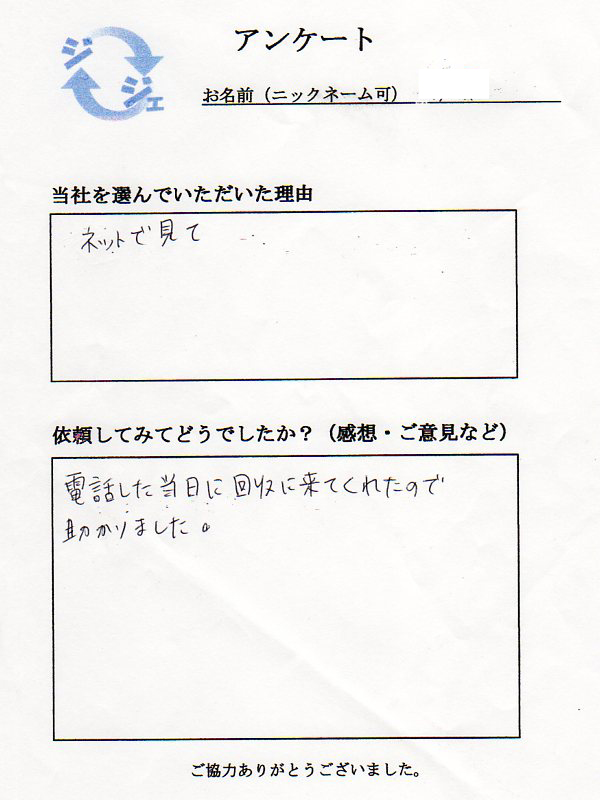 ジジェ
アンケート
お名前（ニックネーム可）
当社を選んでいただいた理由
ネットで見て
依頼してみてどうでしたか？（感想・ご意見など）
電話した当日に回収に来てくれたので
助かりました。
ご協力ありがとうございました。